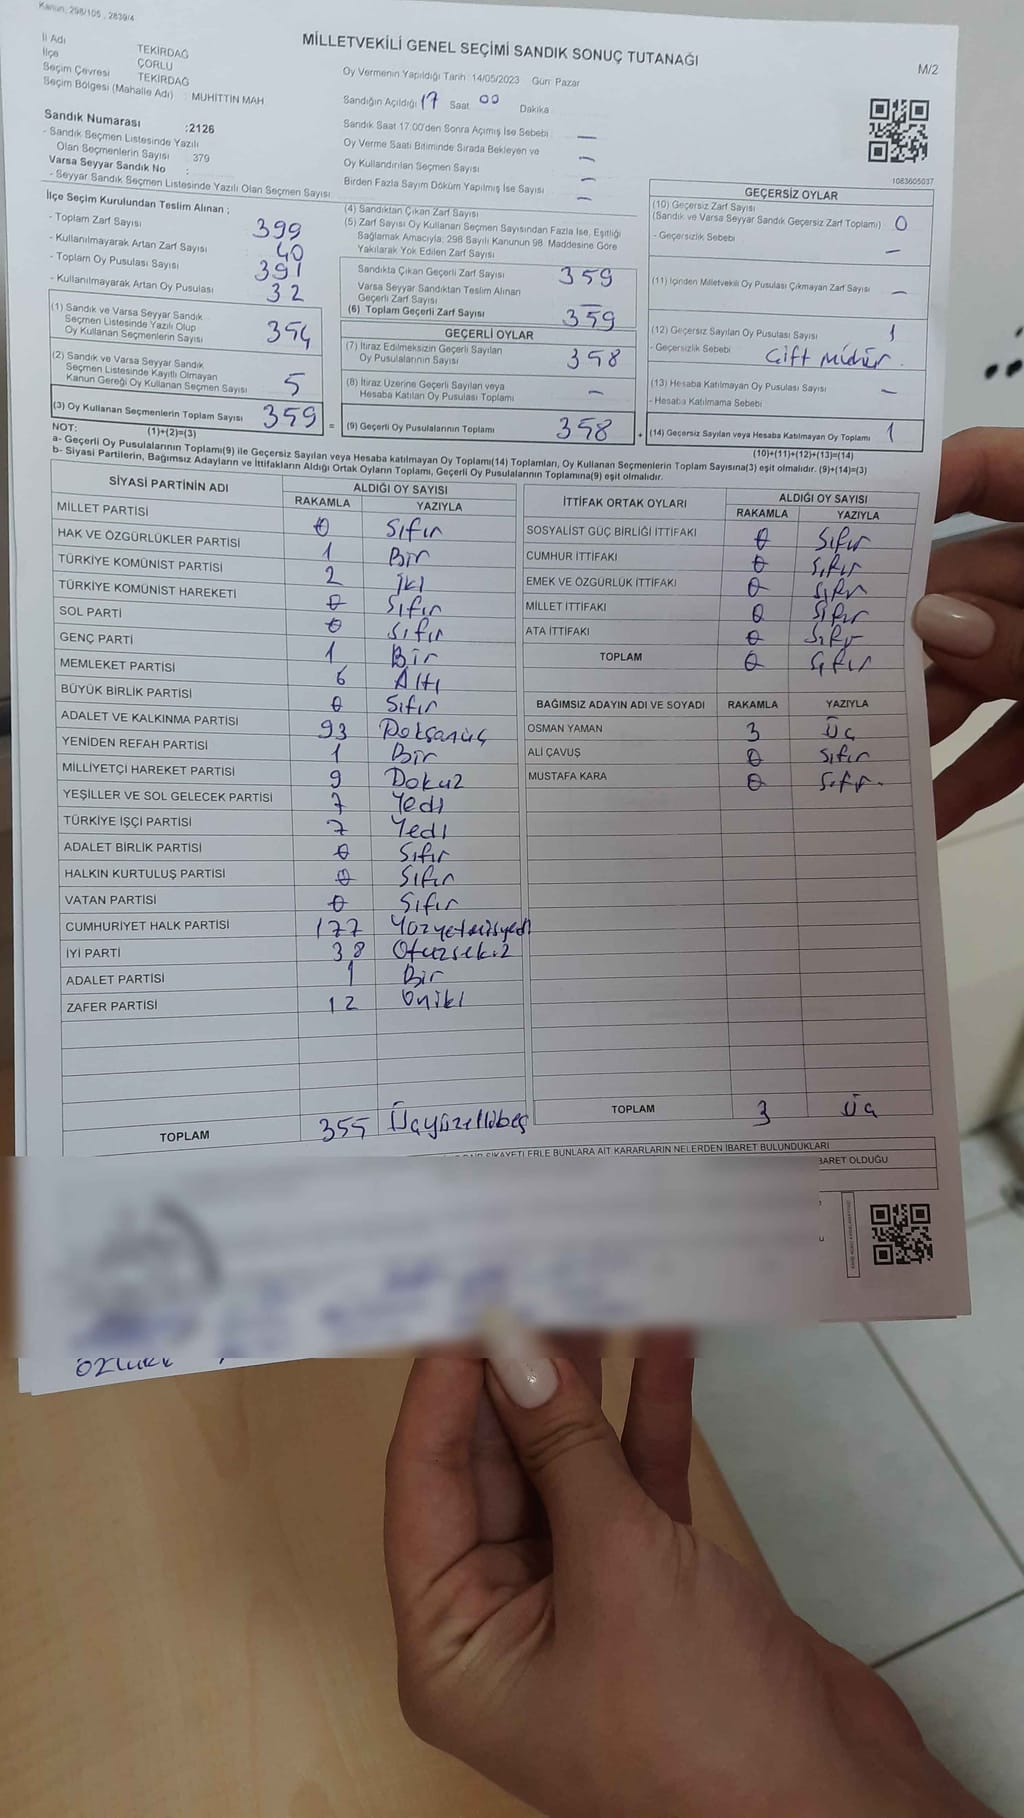 Kanun; 298/105 , 2839/4
MİLLETVEKİLİ GENEL SEÇİMİ SANDIK SONUÇ TUTANAĞI
M/2
İl Adı TEKİRDAĞ
İlçe ÇORLU
Seçim Çevresi TEKİRDAĞ
Seçim Bölgesi (Mahalle Adı) : MUHİTTİN MAH
Oy Vermenin Yapıldığı Tarih: 14/05/2023 Gün: Pazar
Sandığın Açıldığı 17 Saat 00 Dakika
Sandık Saat 17:00'den Sonra Açılmış İse Sebebi —
Oy Verme Saati Bitiminde Sırada Bekleyen ve
Oy Kullandırılan Seçmen Sayısı —
Birden Fazla Sayım Döküm Yapılmış İse Sayısı —
Sandık Numarası :2126
- Sandık Seçmen Listesinde Yazılı
Olan Seçmenlerin Sayısı : 379
Varsa Seyyar Sandık No :
- Seyyar Sandık Seçmen Listesinde Yazılı Olan Seçmen Sayısı
1083605037
İlçe Seçim Kurulundan Teslim Alınan ;
- Toplam Zarf Sayısı 399
- Kullanılmayarak Artan Zarf Sayısı 40
- Toplam Oy Pusulası Sayısı 391
- Kullanılmayarak Artan Oy Pusulası 32
(1) Sandık ve Varsa Seyyar Sandık
Seçmen Listesinde Yazılı Olup
Oy Kullanan Seçmenlerin Sayısı 354
(2) Sandık ve Varsa Seyyar Sandık
Seçmen Listesinde Kayıtlı Olmayan
Kanun Gereği Oy Kullanan Seçmen Sayısı 5
(3) Oy Kullanan Seçmenlerin Toplam Sayısı 359
(4) Sandıktan Çıkan Zarf Sayısı
(5) Zarf Sayısı Oy Kullanan Seçmen Sayısından Fazla İse, Eşitliği
Sağlamak Amacıyla; 298 Sayılı Kanunun 98. Maddesine Göre
Yakılarak Yok Edilen Zarf Sayısı
Sandıkta Çıkan Geçerli Zarf Sayısı 359
Varsa Seyyar Sandıktan Teslim Alınan
Geçerli Zarf Sayısı —
(6) Toplam Geçerli Zarf Sayısı 359
GEÇERLİ OYLAR
(7) İtiraz Edilmeksizin Geçerli Sayılan
Oy Pusulalarının Sayısı 358
(8) İtiraz Üzerine Geçerli Sayılan veya
Hesaba Katılan Oy Pusulası Toplamı —
= (9) Geçerli Oy Pusulalarının Toplamı 358
GEÇERSİZ OYLAR
(10) Geçersiz Zarf Sayısı
(Sandık ve Varsa Seyyar Sandık Geçersiz Zarf Toplamı) 0
- Geçersizlik Sebebi —
(11) İçinden Milletvekili Oy Pusulası Çıkmayan Zarf Sayısı —
(12) Geçersiz Sayılan Oy Pusulası Sayısı 1
- Geçersizlik Sebebi Çift Mühür.
(13) Hesaba Katılmayan Oy Pusulası Sayısı —
- Hesaba Katılmama Sebebi
+ (14) Geçersiz Sayılan veya Hesaba Katılmayan Oy Toplamı 1
NOT: (1)+(2)=(3)
(10)+(11)+(12)+(13)=(14)
a- Geçerli Oy Pusulalarının Toplamı(9) ile Geçersiz Sayılan veya Hesaba katılmayan Oy Toplamı(14) Toplamları, Oy Kullanan Seçmenlerin Toplam Sayısına(3) eşit olmalıdır. (9)+(14)=(3)
b- Siyasi Partilerin, Bağımsız Adayların ve İttifakların Aldığı Ortak Oyların Toplamı, Geçerli Oy Pusulalarının Toplamına(9) eşit olmalıdır.
SİYASİ PARTİNİN ADI ALDIĞI OY SAYISI
RAKAMLA YAZIYLA
MİLLET PARTİSİ 0 Sıfır
HAK VE ÖZGÜRLÜKLER PARTİSİ 1 Bir
TÜRKİYE KOMÜNİST PARTİSİ 2 İki
TÜRKİYE KOMÜNİST HAREKETİ 0 Sıfır
SOL PARTİ 0 Sıfır
GENÇ PARTİ 1 Bir
MEMLEKET PARTİSİ 6 Altı
BÜYÜK BİRLİK PARTİSİ 0 Sıfır
ADALET VE KALKINMA PARTİSİ 93 Doksanüç
YENİDEN REFAH PARTİSİ 1 Bir
MİLLİYETÇİ HAREKET PARTİSİ 9 Dokuz
YEŞİLLER VE SOL GELECEK PARTİSİ 7 Yedi
TÜRKİYE İŞÇİ PARTİSİ 7 Yedi
ADALET BİRLİK PARTİSİ 0 Sıfır
HALKIN KURTULUŞ PARTİSİ 0 Sıfır
VATAN PARTİSİ 0 Sıfır
CUMHURİYET HALK PARTİSİ 177 Yüzyetmişyedi
İYİ PARTİ 38 Otuzsekiz
ADALET PARTİSİ 1 Bir
ZAFER PARTİSİ 12 Oniki
TOPLAM 355 Üçyüzellibeş
İTTİFAK ORTAK OYLARI ALDIĞI OY SAYISI
RAKAMLA YAZIYLA
SOSYALİST GÜÇ BİRLİĞİ İTTİFAKI 0 Sıfır
CUMHUR İTTİFAKI 0 Sıfır
EMEK VE ÖZGÜRLÜK İTTİFAKI 0 Sıfır
MİLLET İTTİFAKI 0 Sıfır
ATA İTTİFAKI 0 Sıfır
TOPLAM 0 Sıfır
BAĞIMSIZ ADAYIN ADI VE SOYADI RAKAMLA YAZIYLA
OSMAN YAMAN 3 Üç
ALİ ÇAVUŞ 0 Sıfır
MUSTAFA KARA 0 Sıfır
TOPLAM 3 Üç
ŞİKAYETLERLE BUNLARA AİT KARARLARIN NELERDEN İBARET BULUNDUKLARI
OLDUĞU